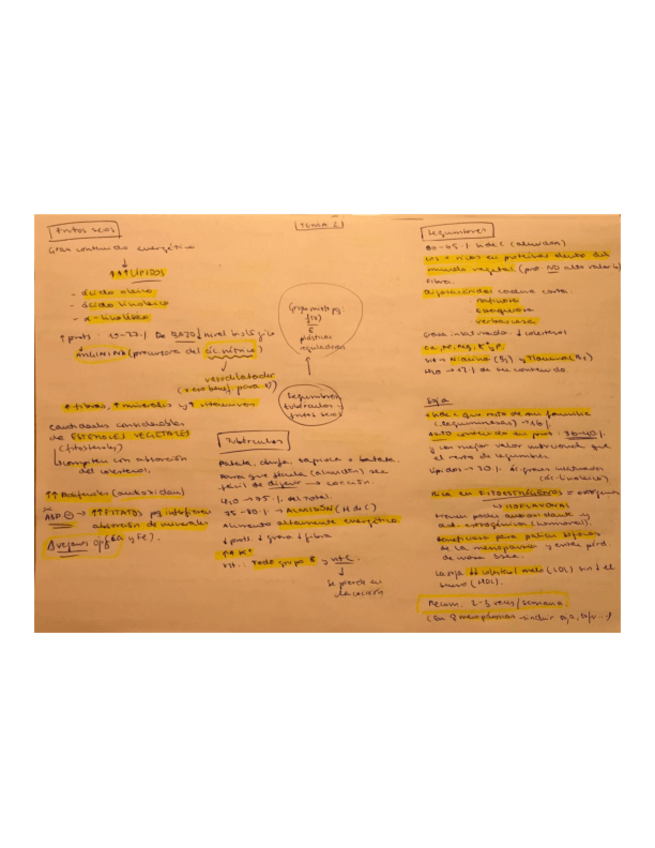 Frutos secos
Gran contenido energético
↓
↑↑↑ LÍPIDOS
- ácido oleico
- ácido linoleico
- α-linolénico
↑ prot: De BAJO nivel biológico
ARGININA (precursora del óx. nítrico)
↓
vasodilatador
↑ fibras, ↑ minerales y ↑ vitaminas
cantidades considerables
de ESTEROLES VEGETALES
(fitosteroles)
compiten con absorción
del colesterol
↑↑ Polifenoles (antioxidan)
→ ↑↑ FITATOS pq interfieren
absorción de minerales
Δ veganos (Ca y Fe).
TEMA 2
Grupo mixto pq:
E
plásticas
reguladoras
↑
Legumbres
tubérculos y
frutos secos
Tubérculos
Patata, chufa, tapioca o batata.
Para que fécula (almidón) sea
fácil de digerir → cocción.
H2O → 75% del total.
75-80% → ALMIDÓN (H de C)
Alimento altamente energético
↓ prot. ↓ grasa ↓ fibra
↑↑ K+
vit: Todo grupo B y vit C.
↓
Se pierde en
la cocción
Legumbres
H de C (almidón)
Los + ricos en proteínas dentro del
mundo vegetal (pero NO alto valor b)
Fibra.
Oligosacáridos cadena corta:
rafinosa
Estaquiosa
verbascosa
Grasa insaturada ↓ colesterol
Ca, Fe, Mg, K+ y P.
Vit → Niacina (B3) y Tiamina (B1)
Soja
(Leguminosas) →
ALTO contenido en prot: 30-40%
y con mejor valor nutricional que
el resto de legumbres.
Lípidos → 20% ác. grasos insaturados
(ác. linoleico)
Rica en FITOESTRÓGENOS =
↳ ISOFLAVONAS
tienen poder antioxidante y
act. estrogénicas (hormonal).
Beneficioso para paliar
de la menopausia y evitar pérd.
de masa ósea.
La soja ↓↓ colesterol malo (LDL) sin ↓ el
bueno (HDL).
Recom. 2-3 veces/semana
(En ♀ menopáusicas → incluir soja, tofu...)